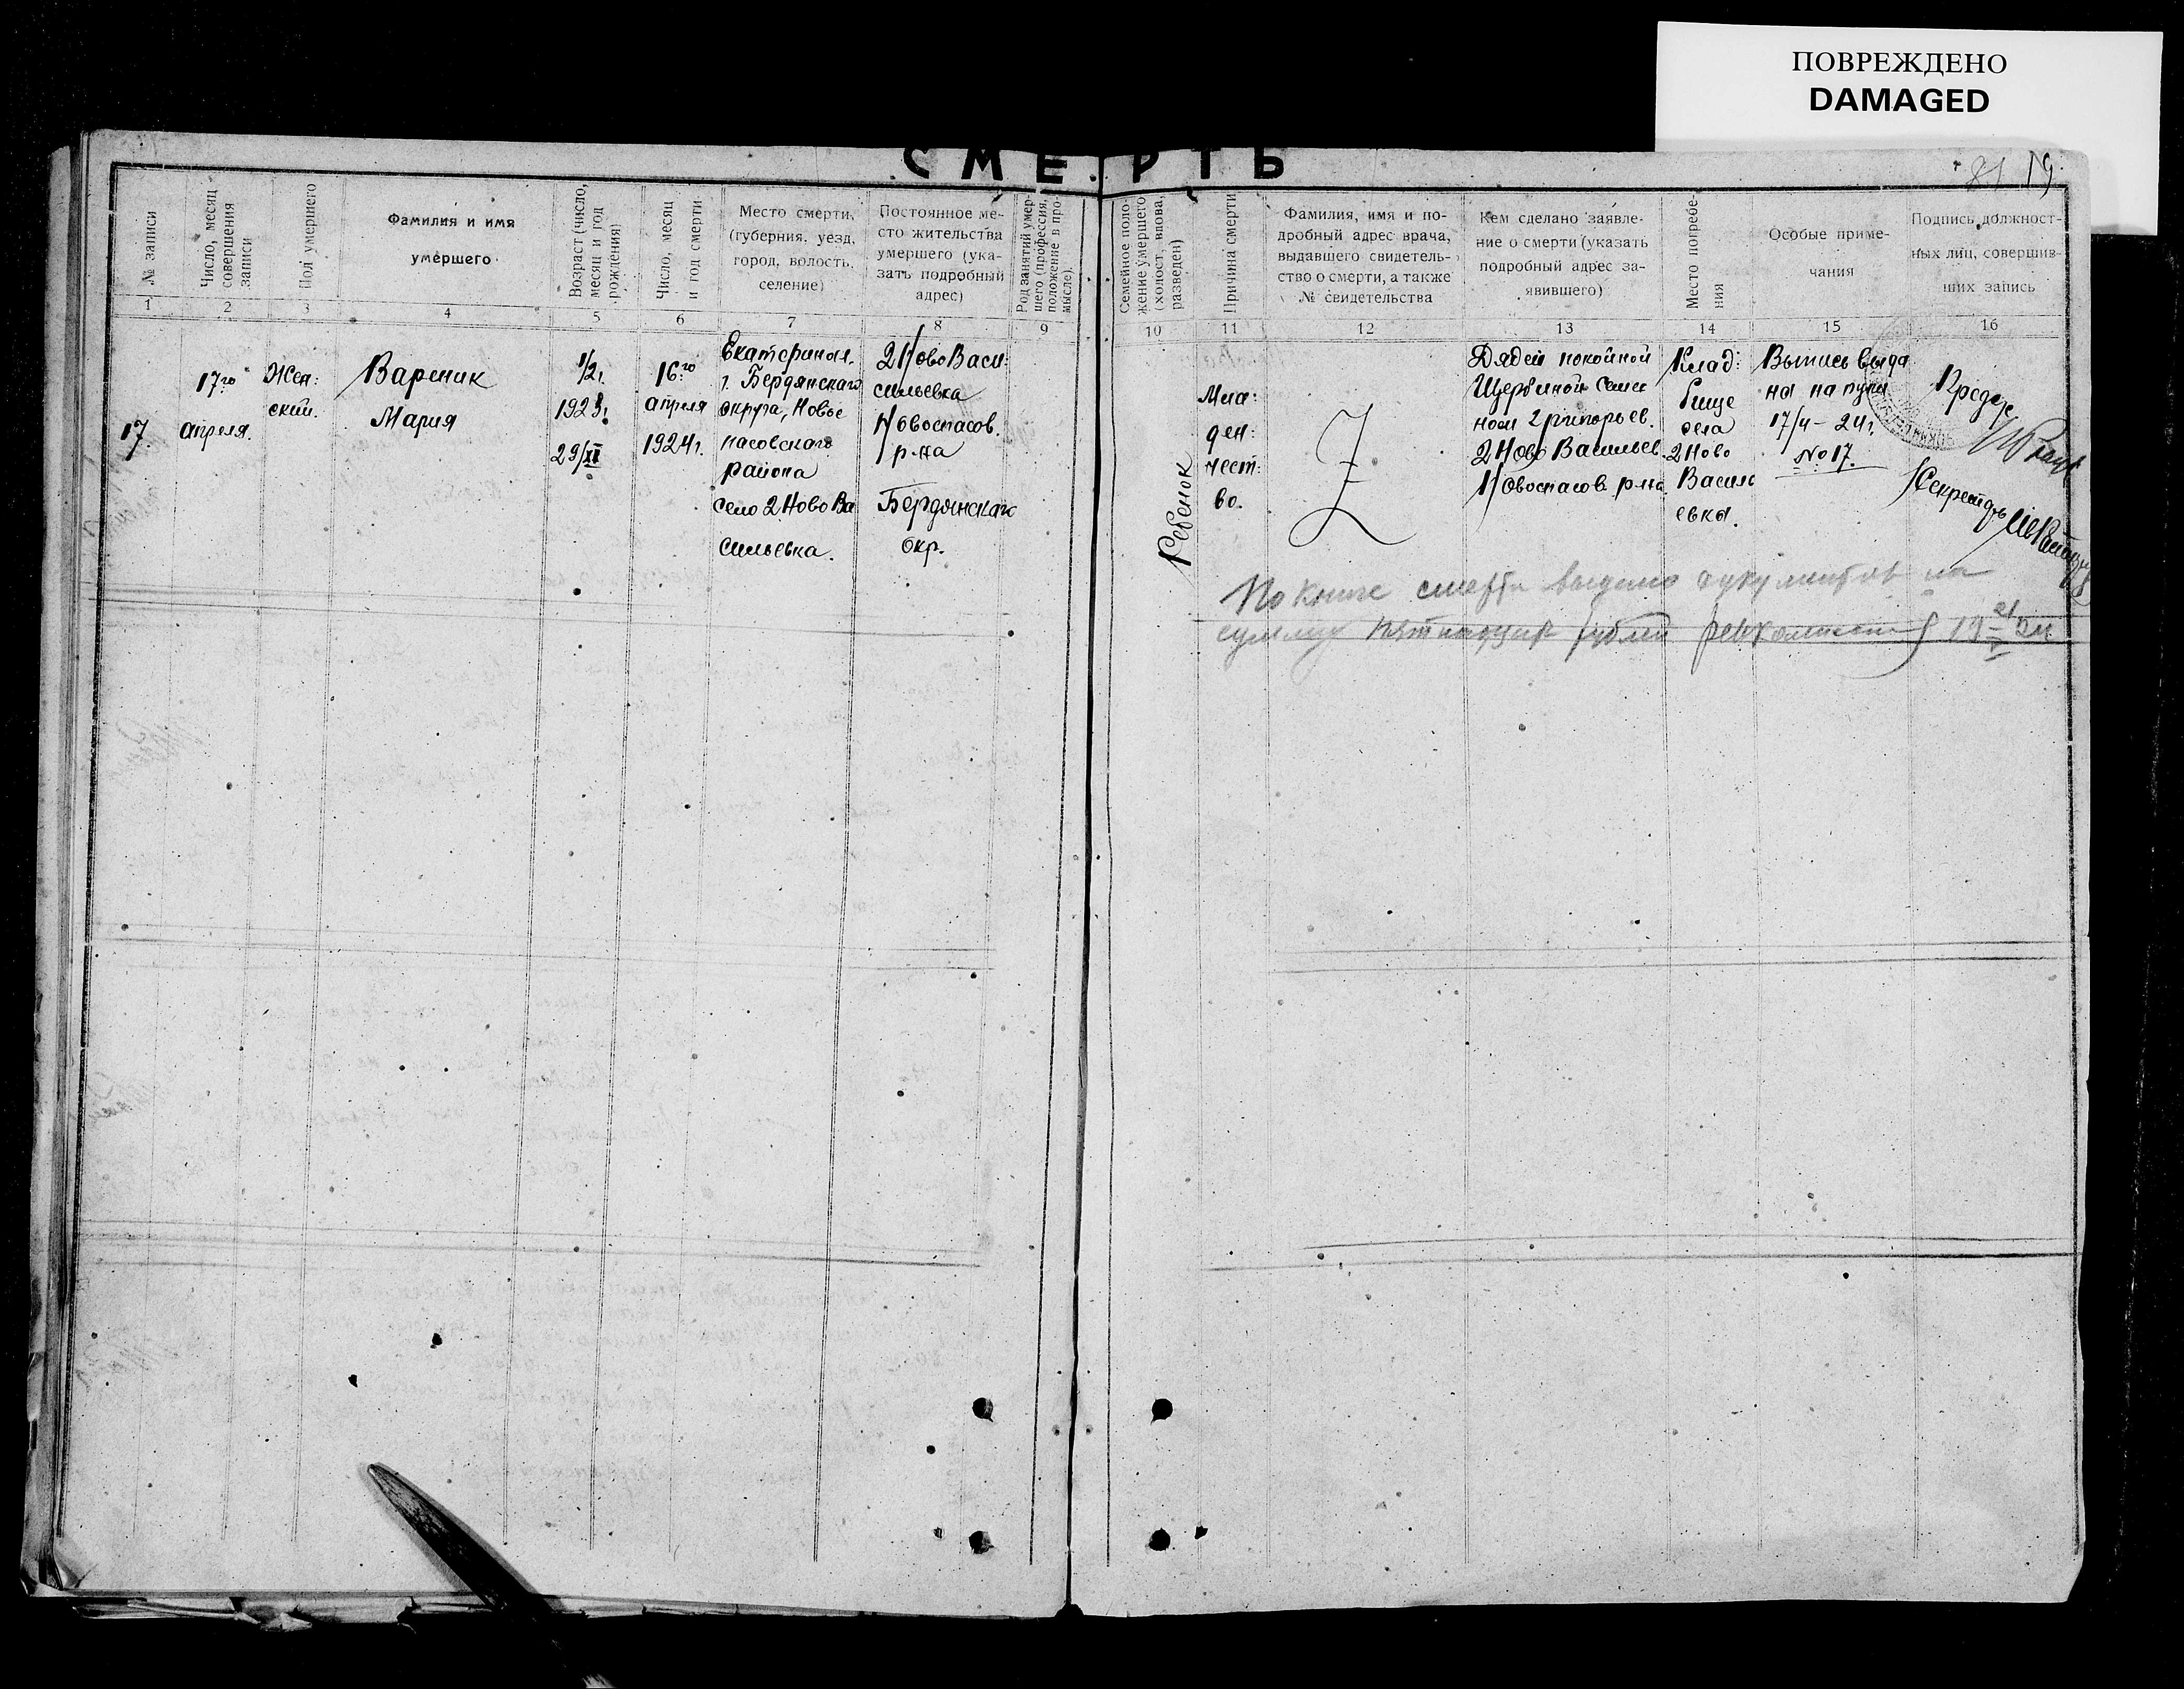 ПОВРЕЖДЕНО
DAMAGED
СМЕРТЬ
81 19
№ записи
Число, месяц
совершения
записи
Пол умершего
Фамилия и имя
умершего
Возраст (число,
месяц и год
рождения)
Число, месяц
и год смерти
Место смерти,
(губерния, уезд,
город, волость,
селение)
Постоянное ме-
сто жительства
умершего (ука-
зать подробный
адрес)
Род занятий умер-
шего (профессия,
положение в про-
мысле).
Семейное поло-
жение умершего
(холост, вдова,
разведен)
Причина смерти
Фамилия, имя и по-
дробный адрес врача,
выдавшего свидетель-
ство о смерти, а также
№ свидетельства
Кем сделано заявле-
ние о смерти (указать
подробный адрес за-
явившего)
Место погребе-
ния
Особые приме-
чания
Подпись должност-
ных лиц, совершив-
ших запись
1 2 3 4 5 6 7 8 9 10 11 12 13 14 15 16
17.
17го
апреля.
Жен:
ский.
Вареник
Мария
1/2г.
1923г.
29/XI
16го
апреля
1924г.
Екатеринол.
г. Бердянскаго
округа, Ново
пасовскаго
района
село 2 Ново Ва
сильевка.
2 Ново Васи:
сильевка
Новоспасов.
р-на
Бердянскаго
окр.
Ребенок
Мла:
ден:
чест:
во.
Дядей покойной
Щербиной Семе
ном Григорьев.
2 Ново Васильев.
Новоспасов. р-на.
Клад:
бище
села
2 Ново
Василь
евка.
Выпись выда
на на руки
17/4 - 24г.
№ 17.
Председ
Секретарь
По книге смерти выдано документов на
сумму пятнадцать рублей 19 24